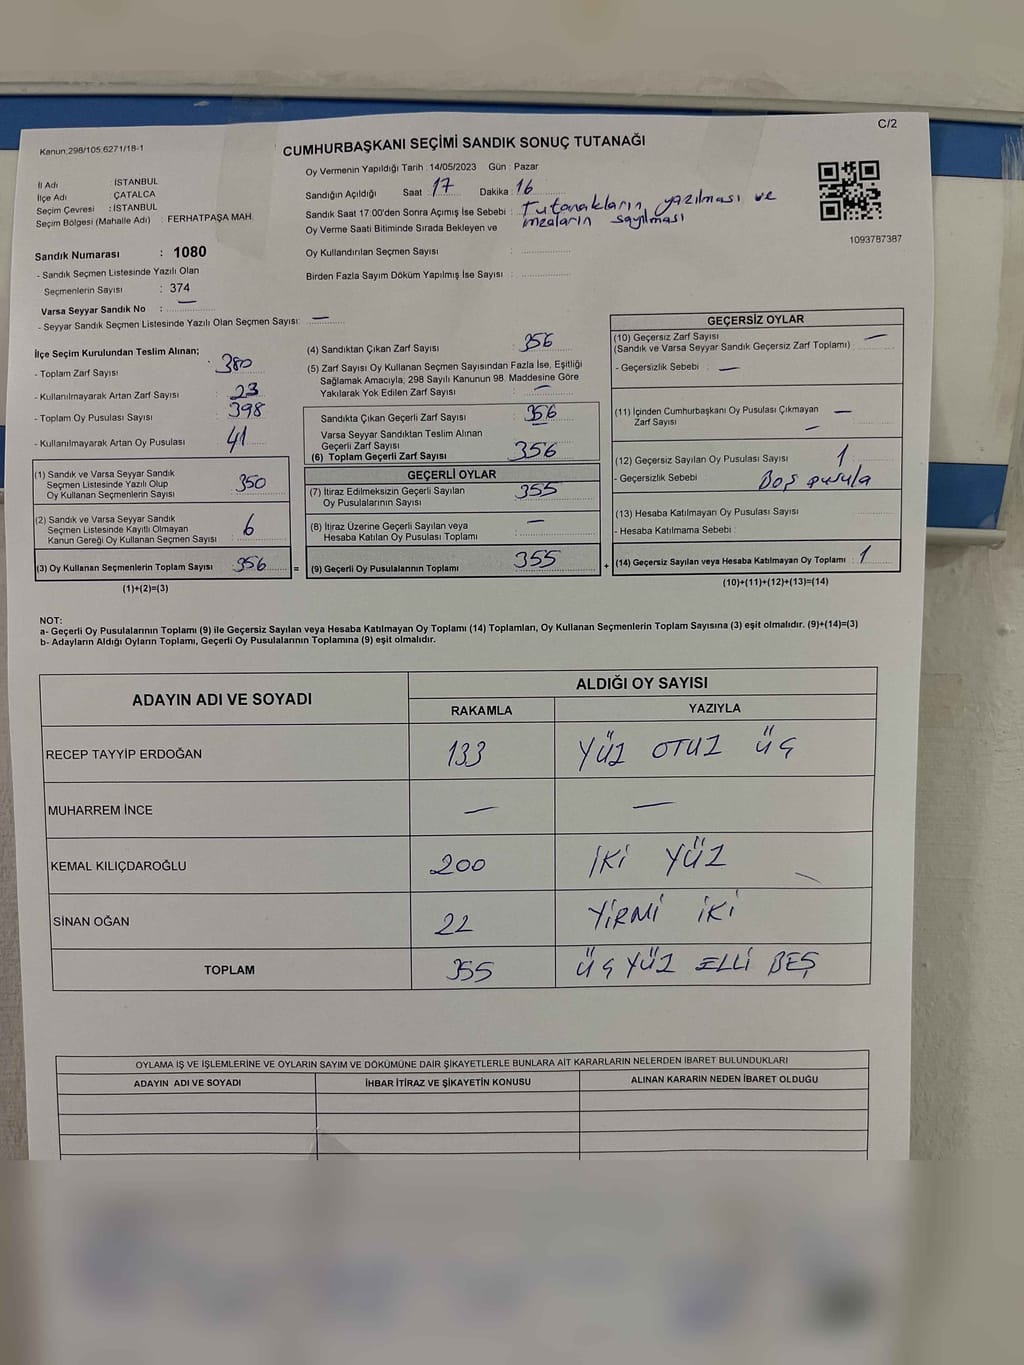 C/2
Kanun:298/105,6271/18-1
CUMHURBAŞKANI SEÇİMİ SANDIK SONUÇ TUTANAĞI
İl Adı : İSTANBUL
İlçe Adı : ÇATALCA
Seçim Çevresi : İSTANBUL
Seçim Bölgesi (Mahalle Adı) : FERHATPAŞA MAH.
Oy Vermenin Yapıldığı Tarih : 14/05/2023 Gün : Pazar
Sandığın Açıldığı Saat : 17 Dakika : 16
Sandık Saat 17:00'den Sonra Açımış İse Sebebi : Tutanakların yazılması ve
imzaların sayılması
Oy Verme Saati Bitiminde Sırada Bekleyen ve
Oy Kullandırılan Seçmen Sayısı :
Birden Fazla Sayım Döküm Yapılmış İse Sayısı :
1093787387
Sandık Numarası : 1080
- Sandık Seçmen Listesinde Yazılı Olan
Seçmenlerin Sayısı : 374
Varsa Seyyar Sandık No : —
- Seyyar Sandık Seçmen Listesinde Yazılı Olan Seçmen Sayısı: —
İlçe Seçim Kurulundan Teslim Alınan;
- Toplam Zarf Sayısı : 380
- Kullanılmayarak Artan Zarf Sayısı : 23
- Toplam Oy Pusulası Sayısı : 398
- Kullanılmayarak Artan Oy Pusulası : 41
(1) Sandık ve Varsa Seyyar Sandık
Seçmen Listesinde Yazılı Olup
Oy Kullanan Seçmenlerin Sayısı : 350
(2) Sandık ve Varsa Seyyar Sandık
Seçmen Listesinde Kayıtlı Olmayan
Kanun Gereği Oy Kullanan Seçmen Sayısı : 6
(3) Oy Kullanan Seçmenlerin Toplam Sayısı : 356 =
(1)+(2)=(3)
(4) Sandıktan Çıkan Zarf Sayısı : 356
(5) Zarf Sayısı Oy Kullanan Seçmen Sayısından Fazla İse, Eşitliği
Sağlamak Amacıyla, 298 Sayılı Kanunun 98. Maddesine Göre
Yakılarak Yok Edilen Zarf Sayısı : —
Sandıkta Çıkan Geçerli Zarf Sayısı : 356
Varsa Seyyar Sandıktan Teslim Alınan
Geçerli Zarf Sayısı : —
(6) Toplam Geçerli Zarf Sayısı : 356
GEÇERLİ OYLAR
(7) İtiraz Edilmeksizin Geçerli Sayılan
Oy Pusulalarının Sayısı : 355
(8) İtiraz Üzerine Geçerli Sayılan veya
Hesaba Katılan Oy Pusulası Toplamı : —
(9) Geçerli Oy Pusulalarının Toplamı : 355 +
GEÇERSİZ OYLAR
(10) Geçersiz Zarf Sayısı
(Sandık ve Varsa Seyyar Sandık Geçersiz Zarf Toplamı) : —
- Geçersizlik Sebebi : —
(11) İçinden Cumhurbaşkanı Oy Pusulası Çıkmayan
Zarf Sayısı : —
—
(12) Geçersiz Sayılan Oy Pusulası Sayısı : 1
- Geçersizlik Sebebi : Boş pusula
(13) Hesaba Katılmayan Oy Pusulası Sayısı :
- Hesaba Katılmama Sebebi :
(14) Geçersiz Sayılan veya Hesaba Katılmayan Oy Toplamı : 1
(10)+(11)+(12)+(13)=(14)
NOT:
a- Geçerli Oy Pusulalarının Toplamı (9) ile Geçersiz Sayılan veya Hesaba Katılmayan Oy Toplamı (14) Toplamları, Oy Kullanan Seçmenlerin Toplam Sayısına (3) eşit olmalıdır. (9)+(14)=(3)
b- Adayların Aldığı Oyların Toplamı, Geçerli Oy Pusulalarının Toplamına (9) eşit olmalıdır.
ADAYIN ADI VE SOYADI ALDIĞI OY SAYISI
RAKAMLA YAZIYLA
RECEP TAYYİP ERDOĞAN 133 YÜZ OTUZ ÜÇ
MUHARREM İNCE — —
KEMAL KILIÇDAROĞLU 200 İKİ YÜZ
SİNAN OĞAN 22 YİRMİ İKİ
TOPLAM 355 ÜÇ YÜZ ELLİ BEŞ
OYLAMA İŞ VE İŞLEMLERİNE VE OYLARIN SAYIM VE DÖKÜMÜNE DAİR ŞİKAYETLERLE BUNLARA AİT KARARLARIN NELERDEN İBARET BULUNDUKLARI
ADAYIN ADI VE SOYADI İHBAR İTİRAZ VE ŞİKAYETİN KONUSU ALINAN KARARIN NEDEN İBARET OLDUĞU